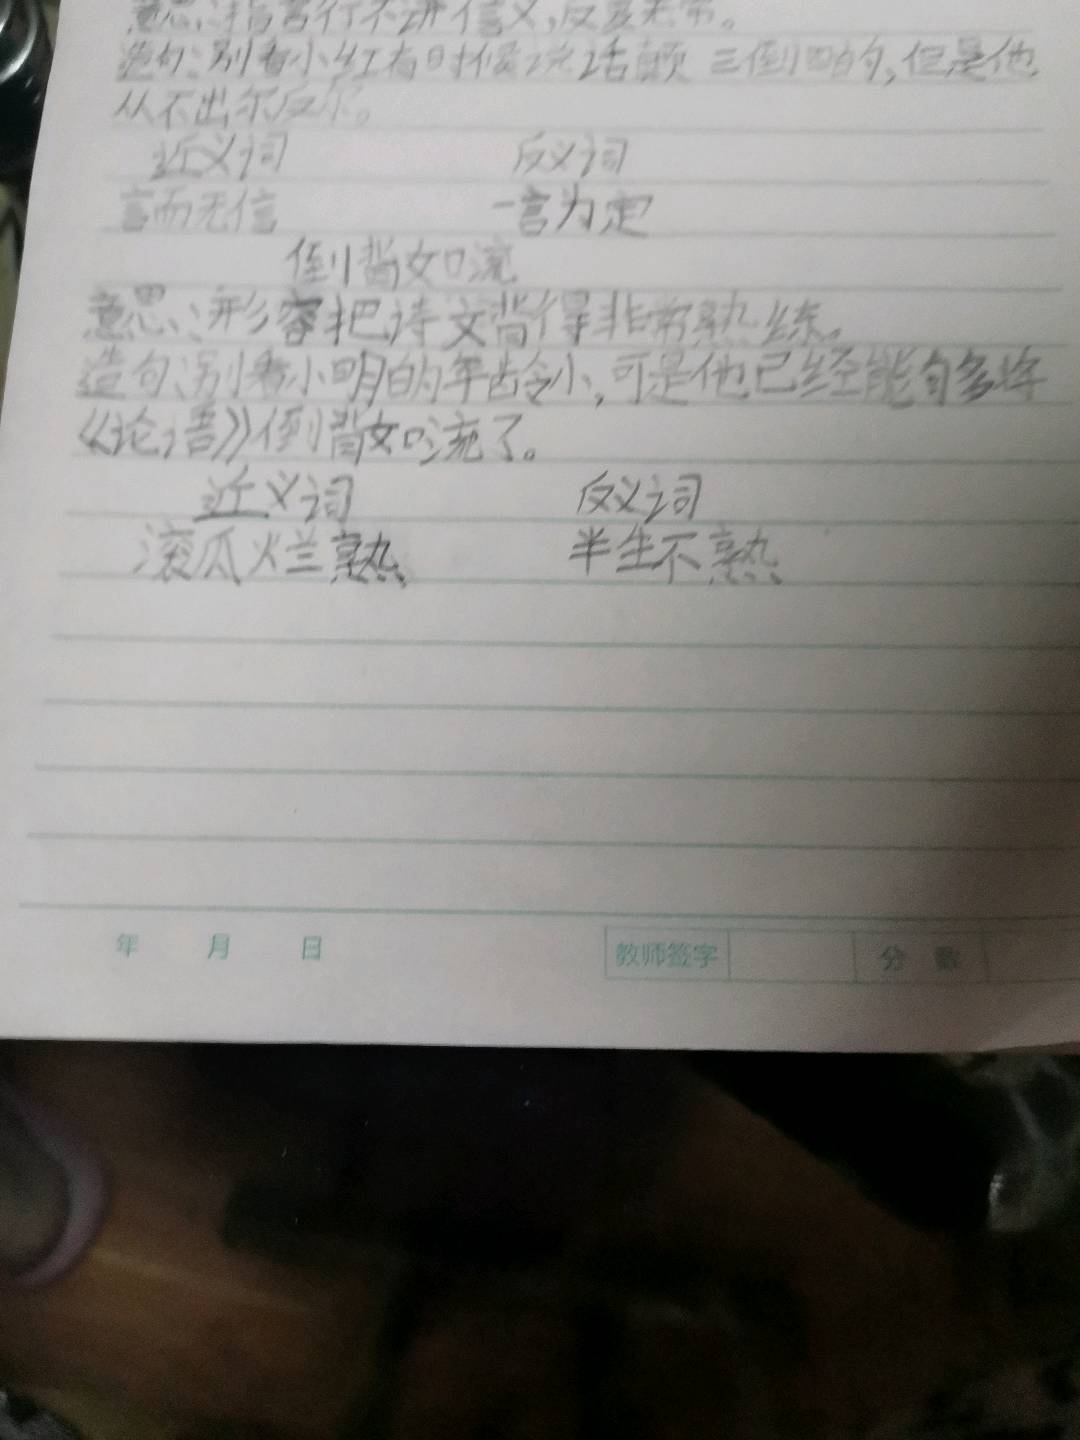 意思:指言行不讲信义,反复无常。
造句:别看小红有时候说话颠三倒四的,但是他
从不出尔反尔。
近义词 反义词
言而无信 一言为定
倒背如流
意思:形容把诗文背得非常熟练。
造句:别看小明的年龄小,可是他已经能够将
《论语》倒背如流了。
近义词 反义词
滚瓜烂熟 半生不熟
年 月 日 教师签字 分 数